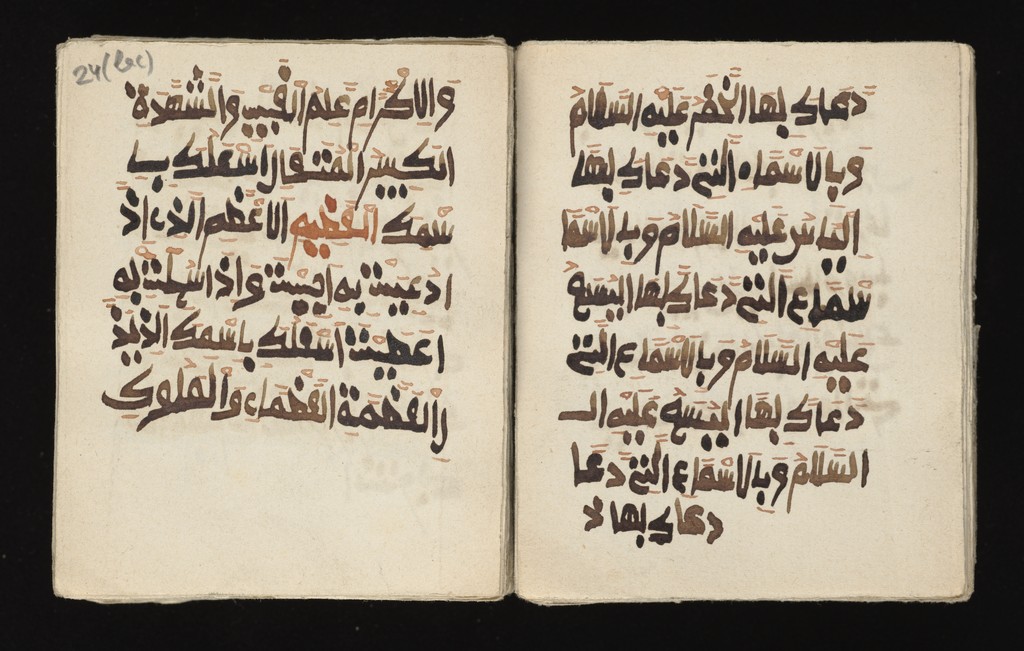 دعاك بها الخضر عليه السلام
وبالاسماء التي دعاك بها
الياس عليه السلام وبالاسما
سماء التي دعاك بها اليسع
عليه السلام وبالاسماء التي
دعاك بها اليسع عليه الـ
السلام وبالاسماء التي دعا
دعاك بها لا
24 (bec)
والاكرام علم الغيب والشهدة
الكبير المتعال اسعلك ب
سمك العظيم الاعظم الذي اذ
ادعيت به اجبت واذا سىلت به
اعطيت اسعلك باسمك الذي
العظمة العظماء والملوك